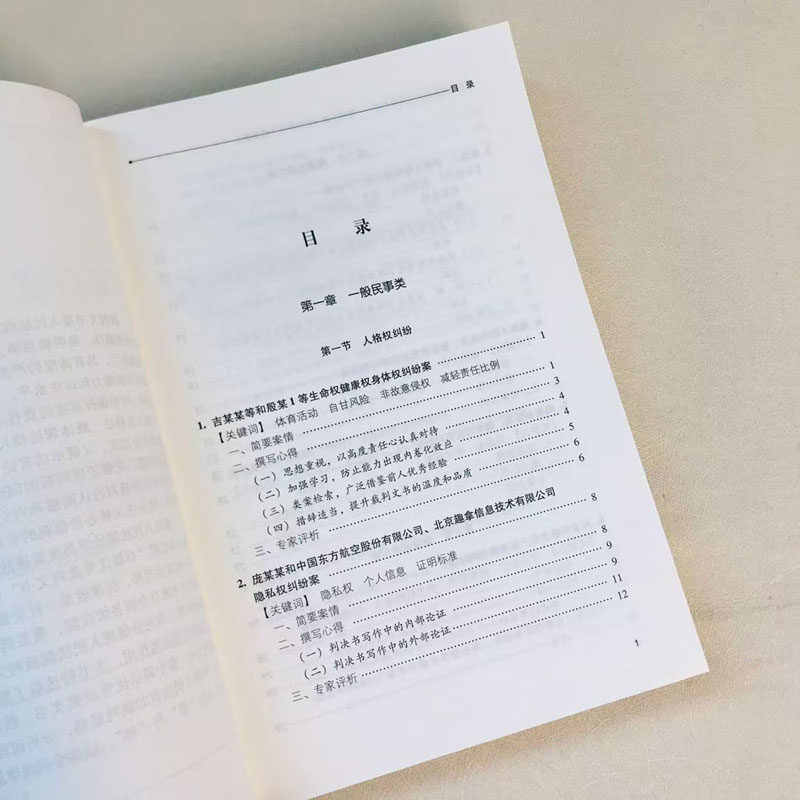 目 录
目 录
第一章 一般民事类
第一节 人格权纠纷
1. 吉某某等和殷某1等生命权健康权身体权纠纷案 1
【关键词】 体育活动 自甘风险 非故意侵权 减轻责任比例
一、简要案情 1
二、撰写心得 3
（一）思想重视，以高度责任心认真对待 4
（二）加强学习，防止能力出现内卷化效应 4
（三）类案检索，广泛借鉴前人优秀经验 5
（四）措辞适当，提升裁判文书的温度和品质 6
三、专家评析 6
2. 庞某某和中国东方航空股份有限公司、北京趣拿信息技术有限公司
隐私权纠纷案 8
【关键词】 隐私权 个人信息 证明标准
一、简要案情 8
二、撰写心得 9
（一）判决书写作中的内部论证 9
（二）判决书写作中的外部论证 11
三、专家评析 12
1